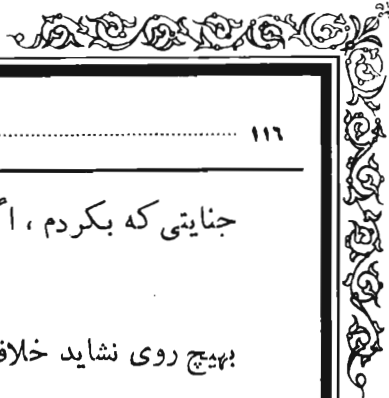 ١١٦
جنایتی که بکردم ، اگ
بهیچ روی نشاید خلاف